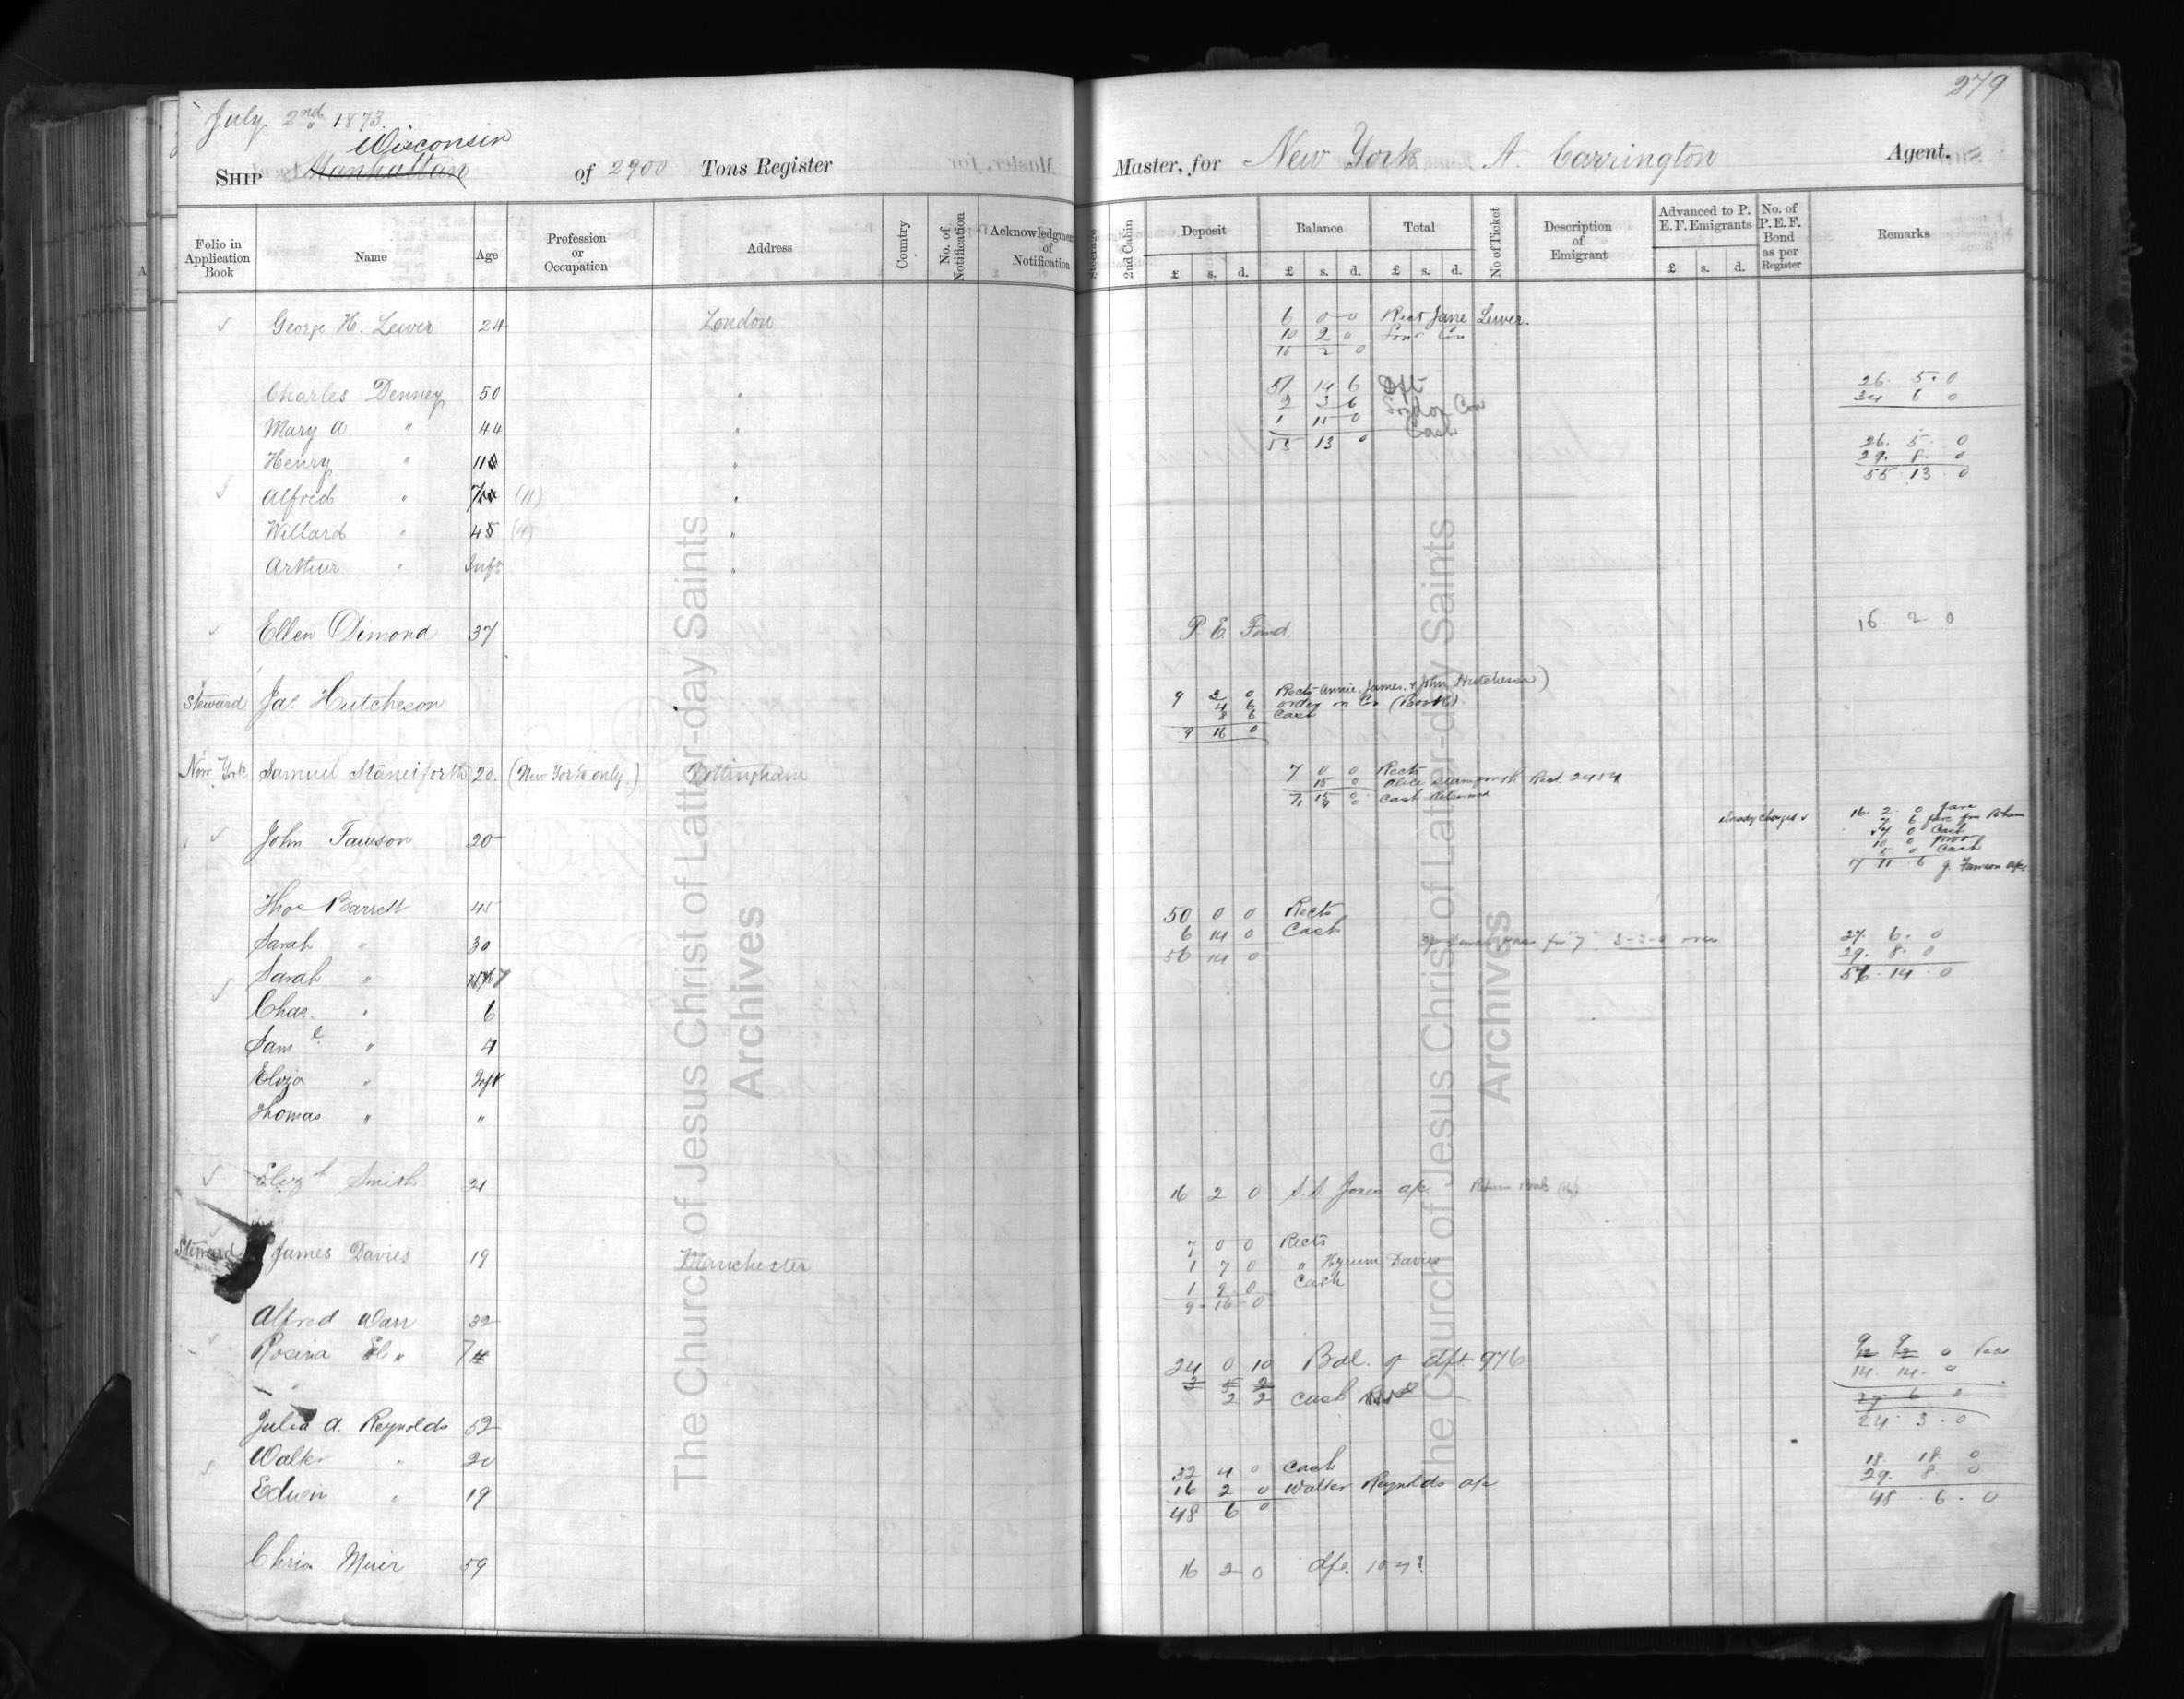 279
July 2nd 1873.
Wisconsin
SHIP Manhattan of 2900 Tons Register Master, for New York A. Carrington Agent.
Folio in Application Book Name Age Profession or Occupation Address Country No. of Notification Acknowledgment of Notification Steerage 2nd Cabin Deposit Balance Total No of Ticket Description of Emigrant Advanced to P. E. F. Emigrants No. of P.E.F. Bond as per Register Remarks
£ s. d. £ s. d. £ s. d. £ s. d.
George H. Lewer 24 London 6 0 0 Rect Jane Lewer.
10 2 0
16 2 0
Charles Denney 50 " 51 14 6 Dft 26. 5. 0
2 3 6 London Con 34 6 0
Mary A. " 44 " 1 15 0 Cash
55 13 0 26. 5. 0
Henry " 11 " 29. 8. 0
55 13 0
Alfred " 7 (11) "
Willard " 4 (4) "
Arthur " Inft "
Ellen Dimond 37 P. E. Fund. 16 2 0
Steward Jas. Hutcheson 9 3 0 Rects Annie, James, & John Hutcheson)
4 6 order on Co (Book)
8 6 Cash
9 16 0
New York Samuel Staniforth 20. (New York only.) Nottingham 7 0 0 Rects
15 0 Alice Rect. 2454
7 15 0 Cash Returned
already charged 16. 2. 0 fare
John Fawson 20 7 6 fare fm Bham
Cash
10 0
5 0 Cash
17 11 6 J. Fawson a/c
Thos Barrett 45 50 0 0 Rects
6 14 0 Cash
Sarah " 30 56 14 0 27. 6. 0
29. 8. 0
Sarah " 7 56. 14. 0
Chas. " 6
Saml " 4
Eliza "
Thomas " "
Elizth Smith 21 16 2 0 S. S. Jones a/c
Steward James Davies 19 Manchester 7 0 0 Rects
1 7 0 " Hyrum Davies
1 9 0 Cash
9 16 0
Alfred Warr 32
Rosina El " 7 24 0 10 Bal. of dft 976
3 5 2 14. 14. 0
2 2 Cash 27 6 0
Julia A. Reynolds 52 24. 3. 0
Walter " 20 32 4 0 Cash 18. 18. 0
16 2 0 Walter Reynolds a/c 29. 8 0
Edwin " 19 48 6 0 48. 6. 0
Chria Muir 59 16 2 0
The Church of Jesus Christ of Latter-day Saints
Archives
The Church of Jesus Christ of Latter-day Saints
Archives